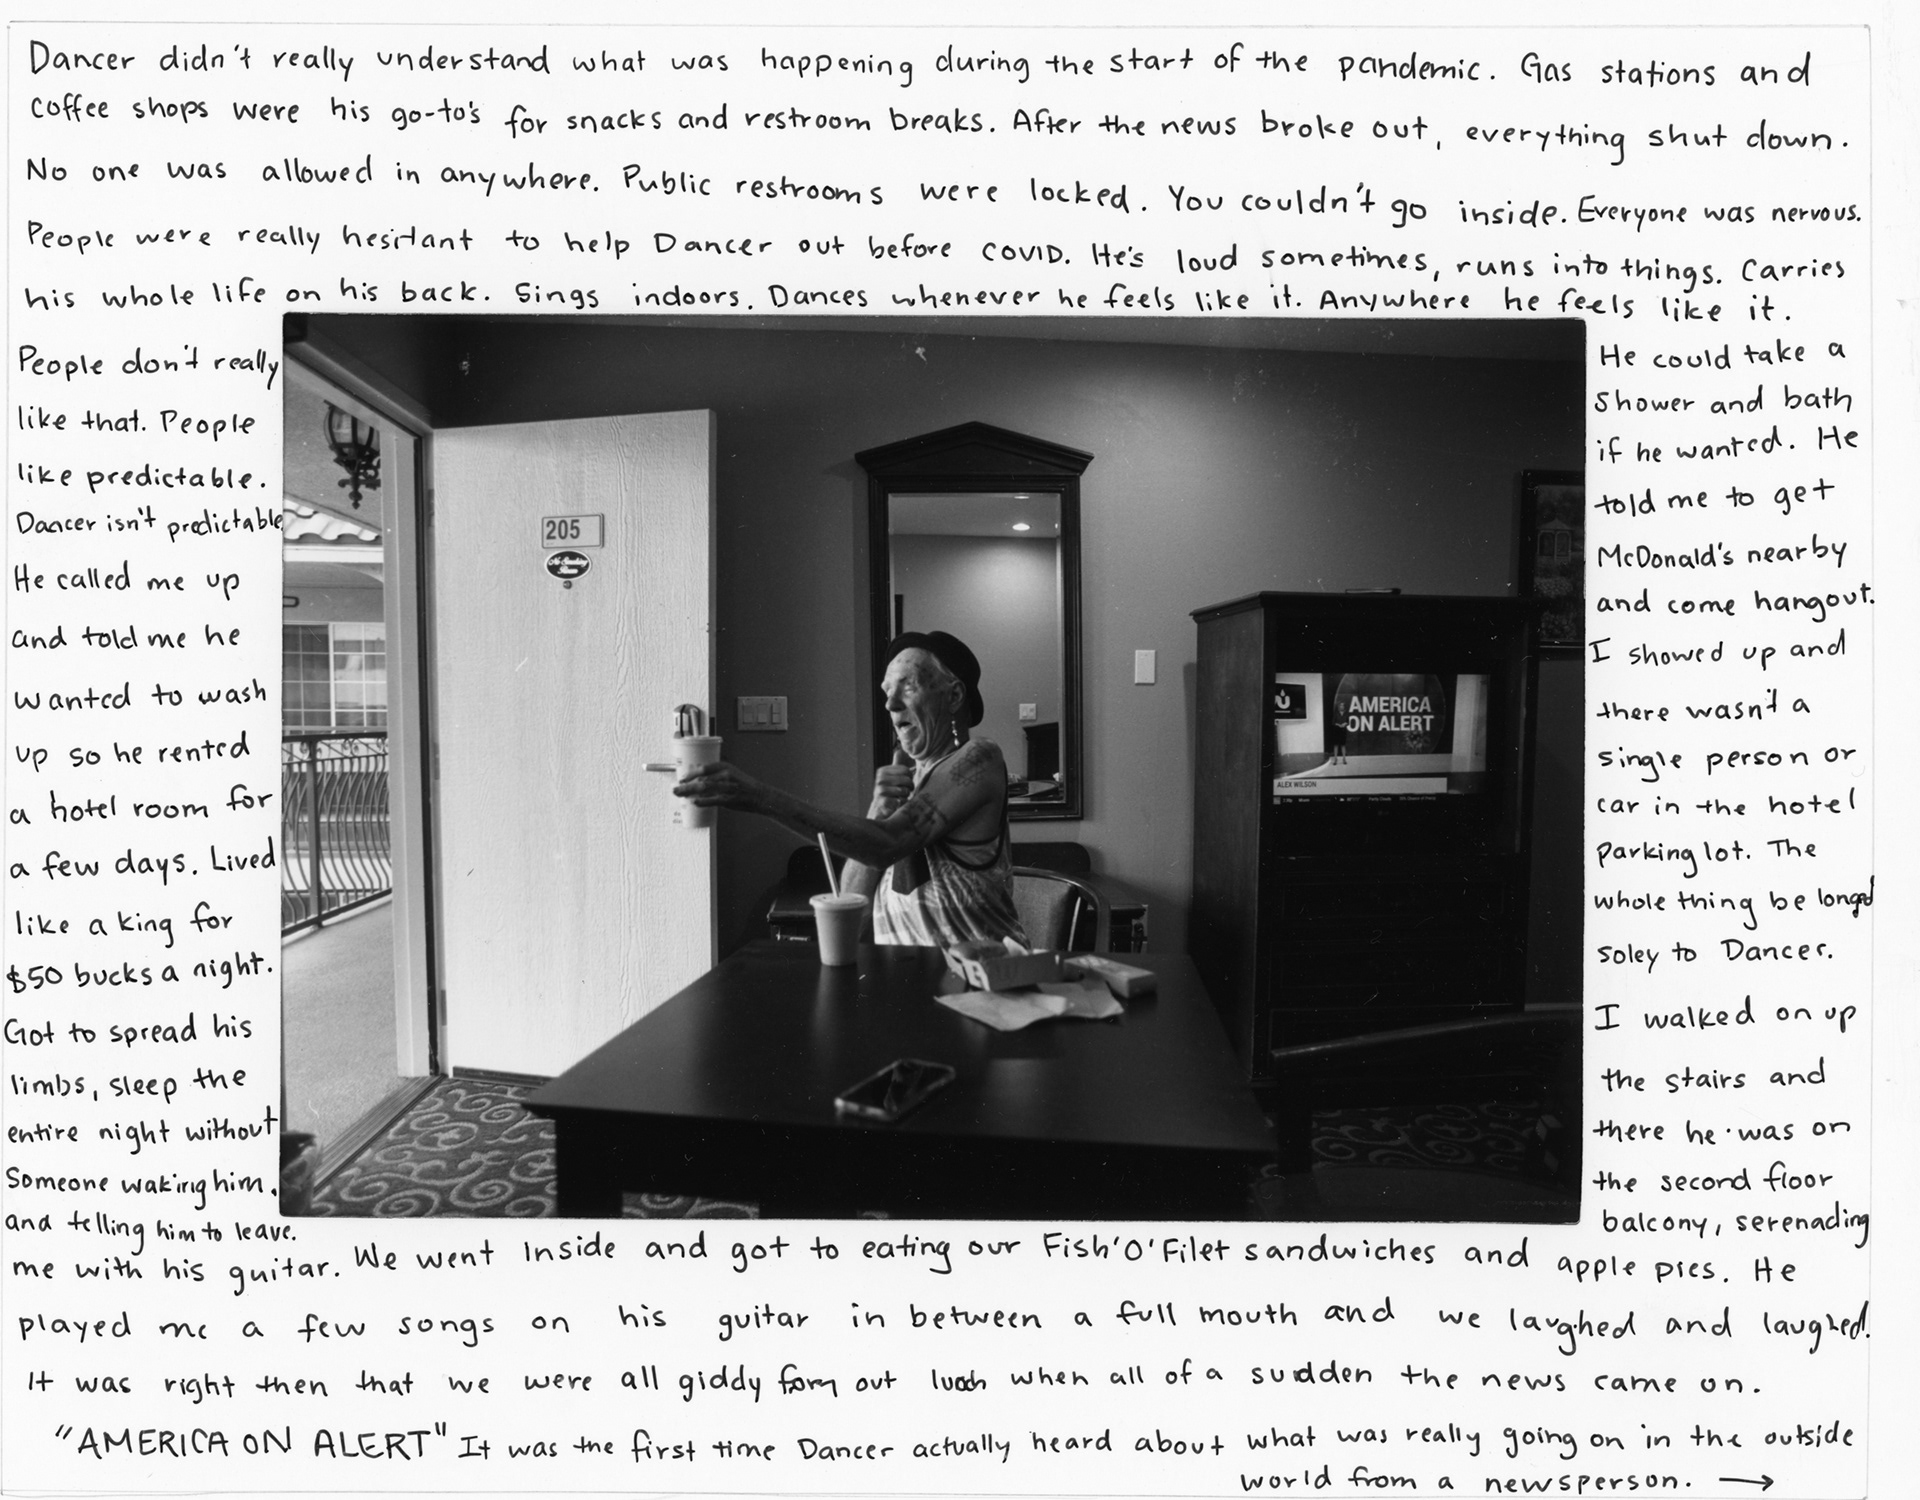 Dancer didn't really understand what was happening during the start of the pandemic. Gas stations and
coffee shops were his go-to's for snacks and restroom breaks. After the news broke out, everything shut down.
No one was allowed in anywhere. Public restrooms were locked. You couldn't go inside. Everyone was nervous.
People were really hesitant to help Dancer out before COVID. He's loud sometimes, runs into things. Carries
his whole life on his back. Sings indoors. Dances whenever he feels like it. Anywhere he feels like it.
People don't really
like that. People
like predictable.
Dancer isn't predictable.
He called me up
and told me he
wanted to wash
up so he rented
a hotel room for
a few days. Lived
like a king for
$50 bucks a night.
Got to spread his
limbs, sleep the
entire night without
Someone waking him.
and telling him to leave.
He could take a
Shower and bath
if he wanted. He
told me to get
McDonald's nearby
and come hangout.
I showed up and
there wasn't a
single person or
car in the hotel
parking lot. The
whole thing belonged
soley to Dancer.
I walked on up
the stairs and
there he was on
the second floor
balcony, serenading
me with his guitar. We went inside and got to eating our Fish'O'Filet sandwiches and apple pies. He
played me a few songs on his guitar in between a full mouth and we laughed and laughed.
It was right then that we were all giddy out when all of a sudden the news came on.
"AMERICA ON ALERT" It was the first time Dancer actually heard about what was really going on in the outside
world from a newsperson. →
205
No Smoking
Room
AMERICA
ON ALERT
ALEX WILSON